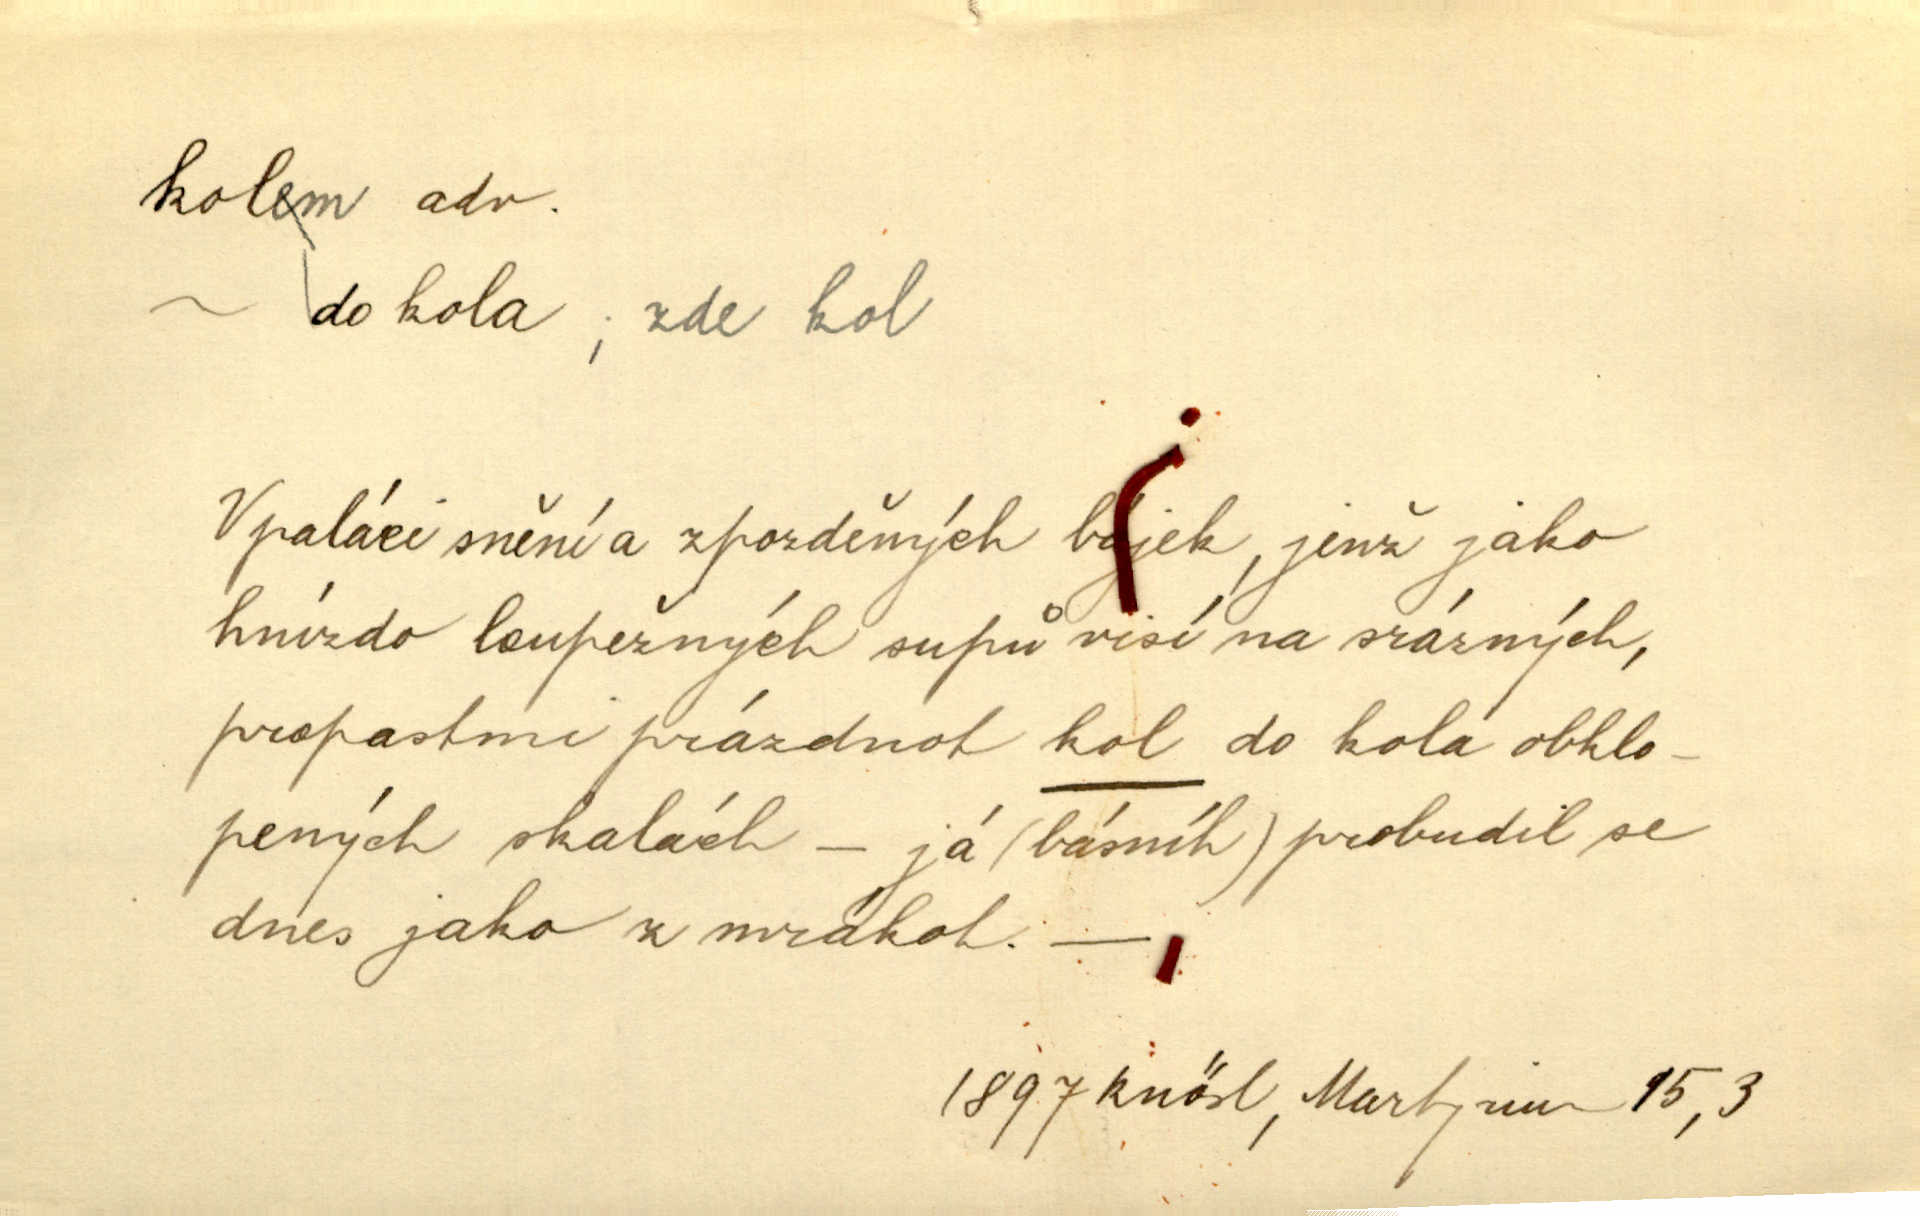 kolem adv.
~ do kola ; zde kol
V paláci snění a zpozděných bájek, jenž jako
hnízdo loupežných supů visí na srázných,
propastmi prázdnot kol do kola obklo-
pených skalách – já (básník) probudil se
dnes jako z mrákot. —
1897 Knösl, Martyrium 15,3